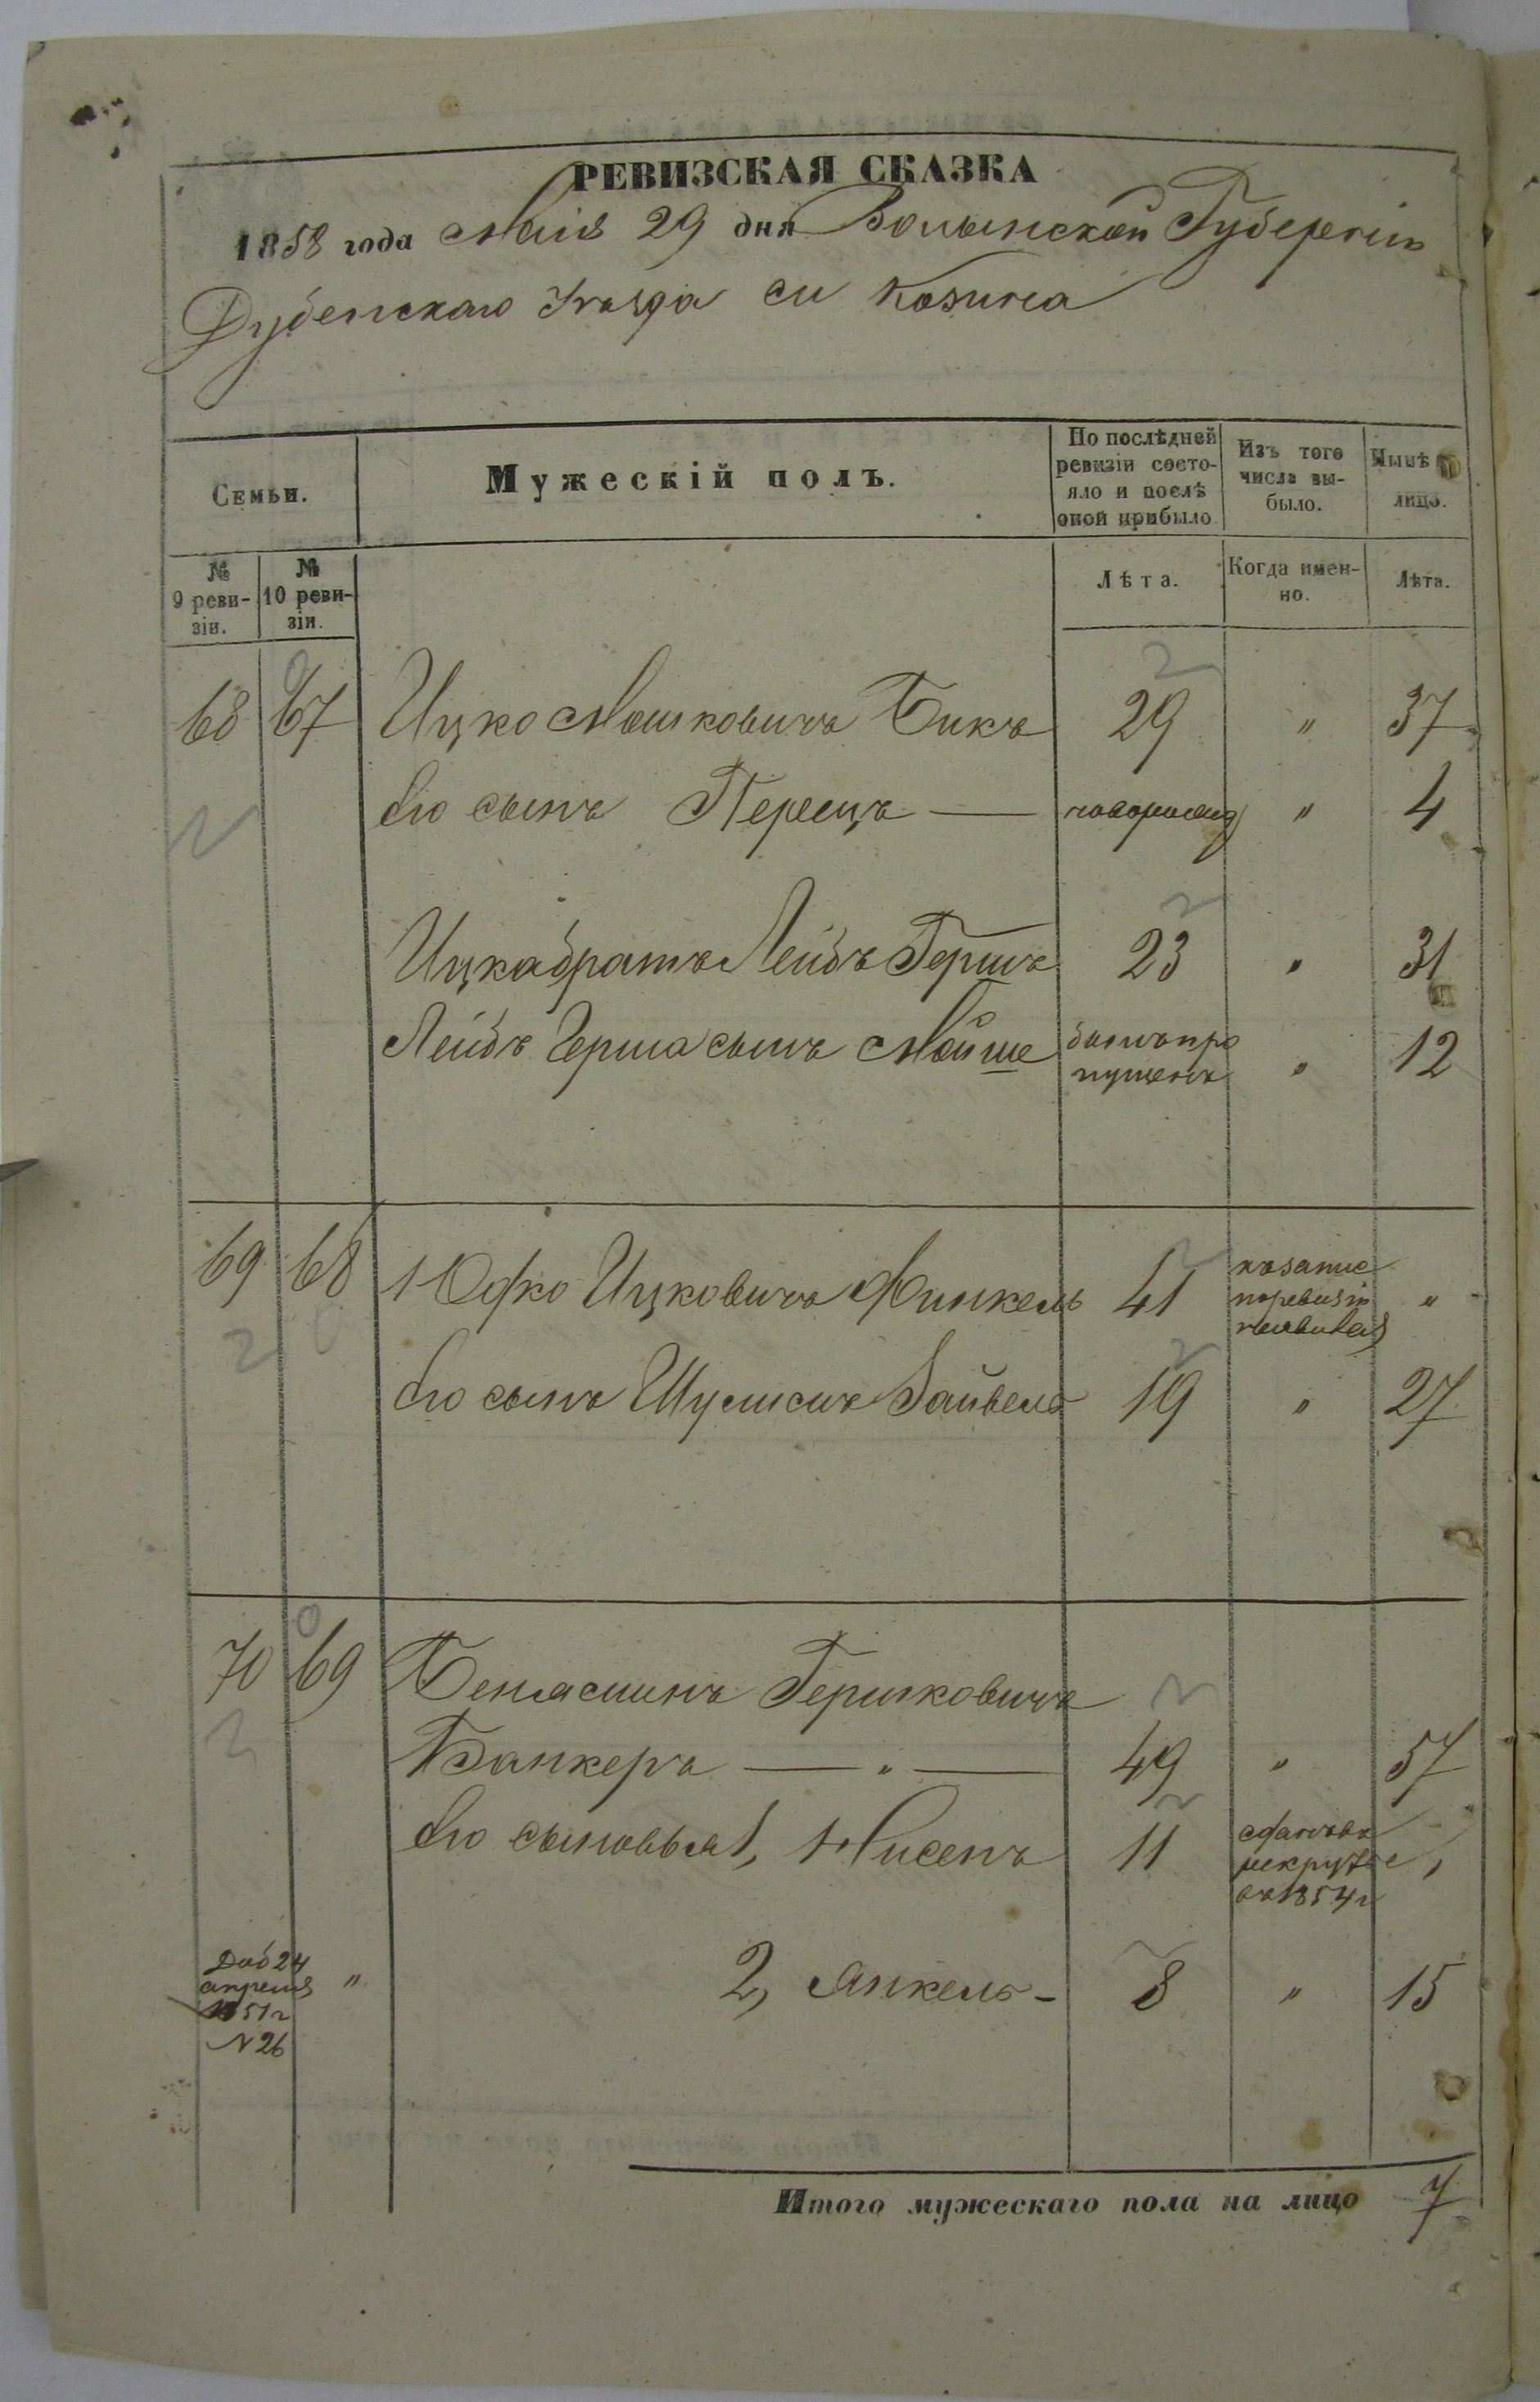 РЕВИЗСКАЯ СКАЗКА
1858 года Маія 29 дня Волынской Губерніи
Дубенскаго Уѣзда м Козина
Семьи.
Мужескій полъ.
По послѣдней
ревизіи состо-
яло и послѣ
оной прибыло
Изъ того
числа вы-
было.
Нынѣ на
лицо.
№
9 реви-
зіи.
№
10 реви-
зіи.
Лѣта.
Когда имен-
но.
Лѣта.
68 67 Ицко Мошковичъ Бикъ 29 " 37
Его сынъ Перецъ — новорожд " 4
Ицка братъ Лейбъ Гершъ 23 " 31
Лейбъ Герша сынъ Мойше былъ про
пущенъ " 12
69 68 Юфко Ицковичъ Финкель 41 "
Его сынъ Шулимъ Файвель 19 " 27
70 69 Беніаминъ Гершковичъ
Банкеръ — " — 49 " 57
Его сыновья 1, Нисенъ 11 сданъ въ
рекруты
въ 1854 г "
Доб 24
апреля
1851 г
N 26
" 2, Янкель - 8 " 15
Итого мужескаго пола на лицо 7